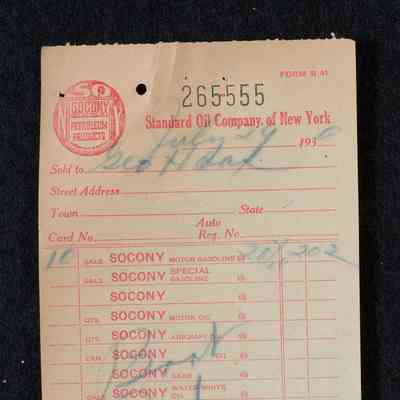 FORM S 41
SOCONY
PETROLEUM
PRODUCTS
265555
Standard Oil Company of New York
July 29 1930
Sold to Geo H
Street Address
Town State
Auto
Card No. Reg. No.
10 GALS SOCONY MOTOR GASOLINE @ 202
GALS SOCONY SPECIAL GASOLINE @
SOCONY @
QTS. SOCONY MOTOR OIL @
QTS. SOCONY AIRCRAFT @
CAN SOCONY OIL @
SOCONY @
SOCONY WATER WHITE @
Boat